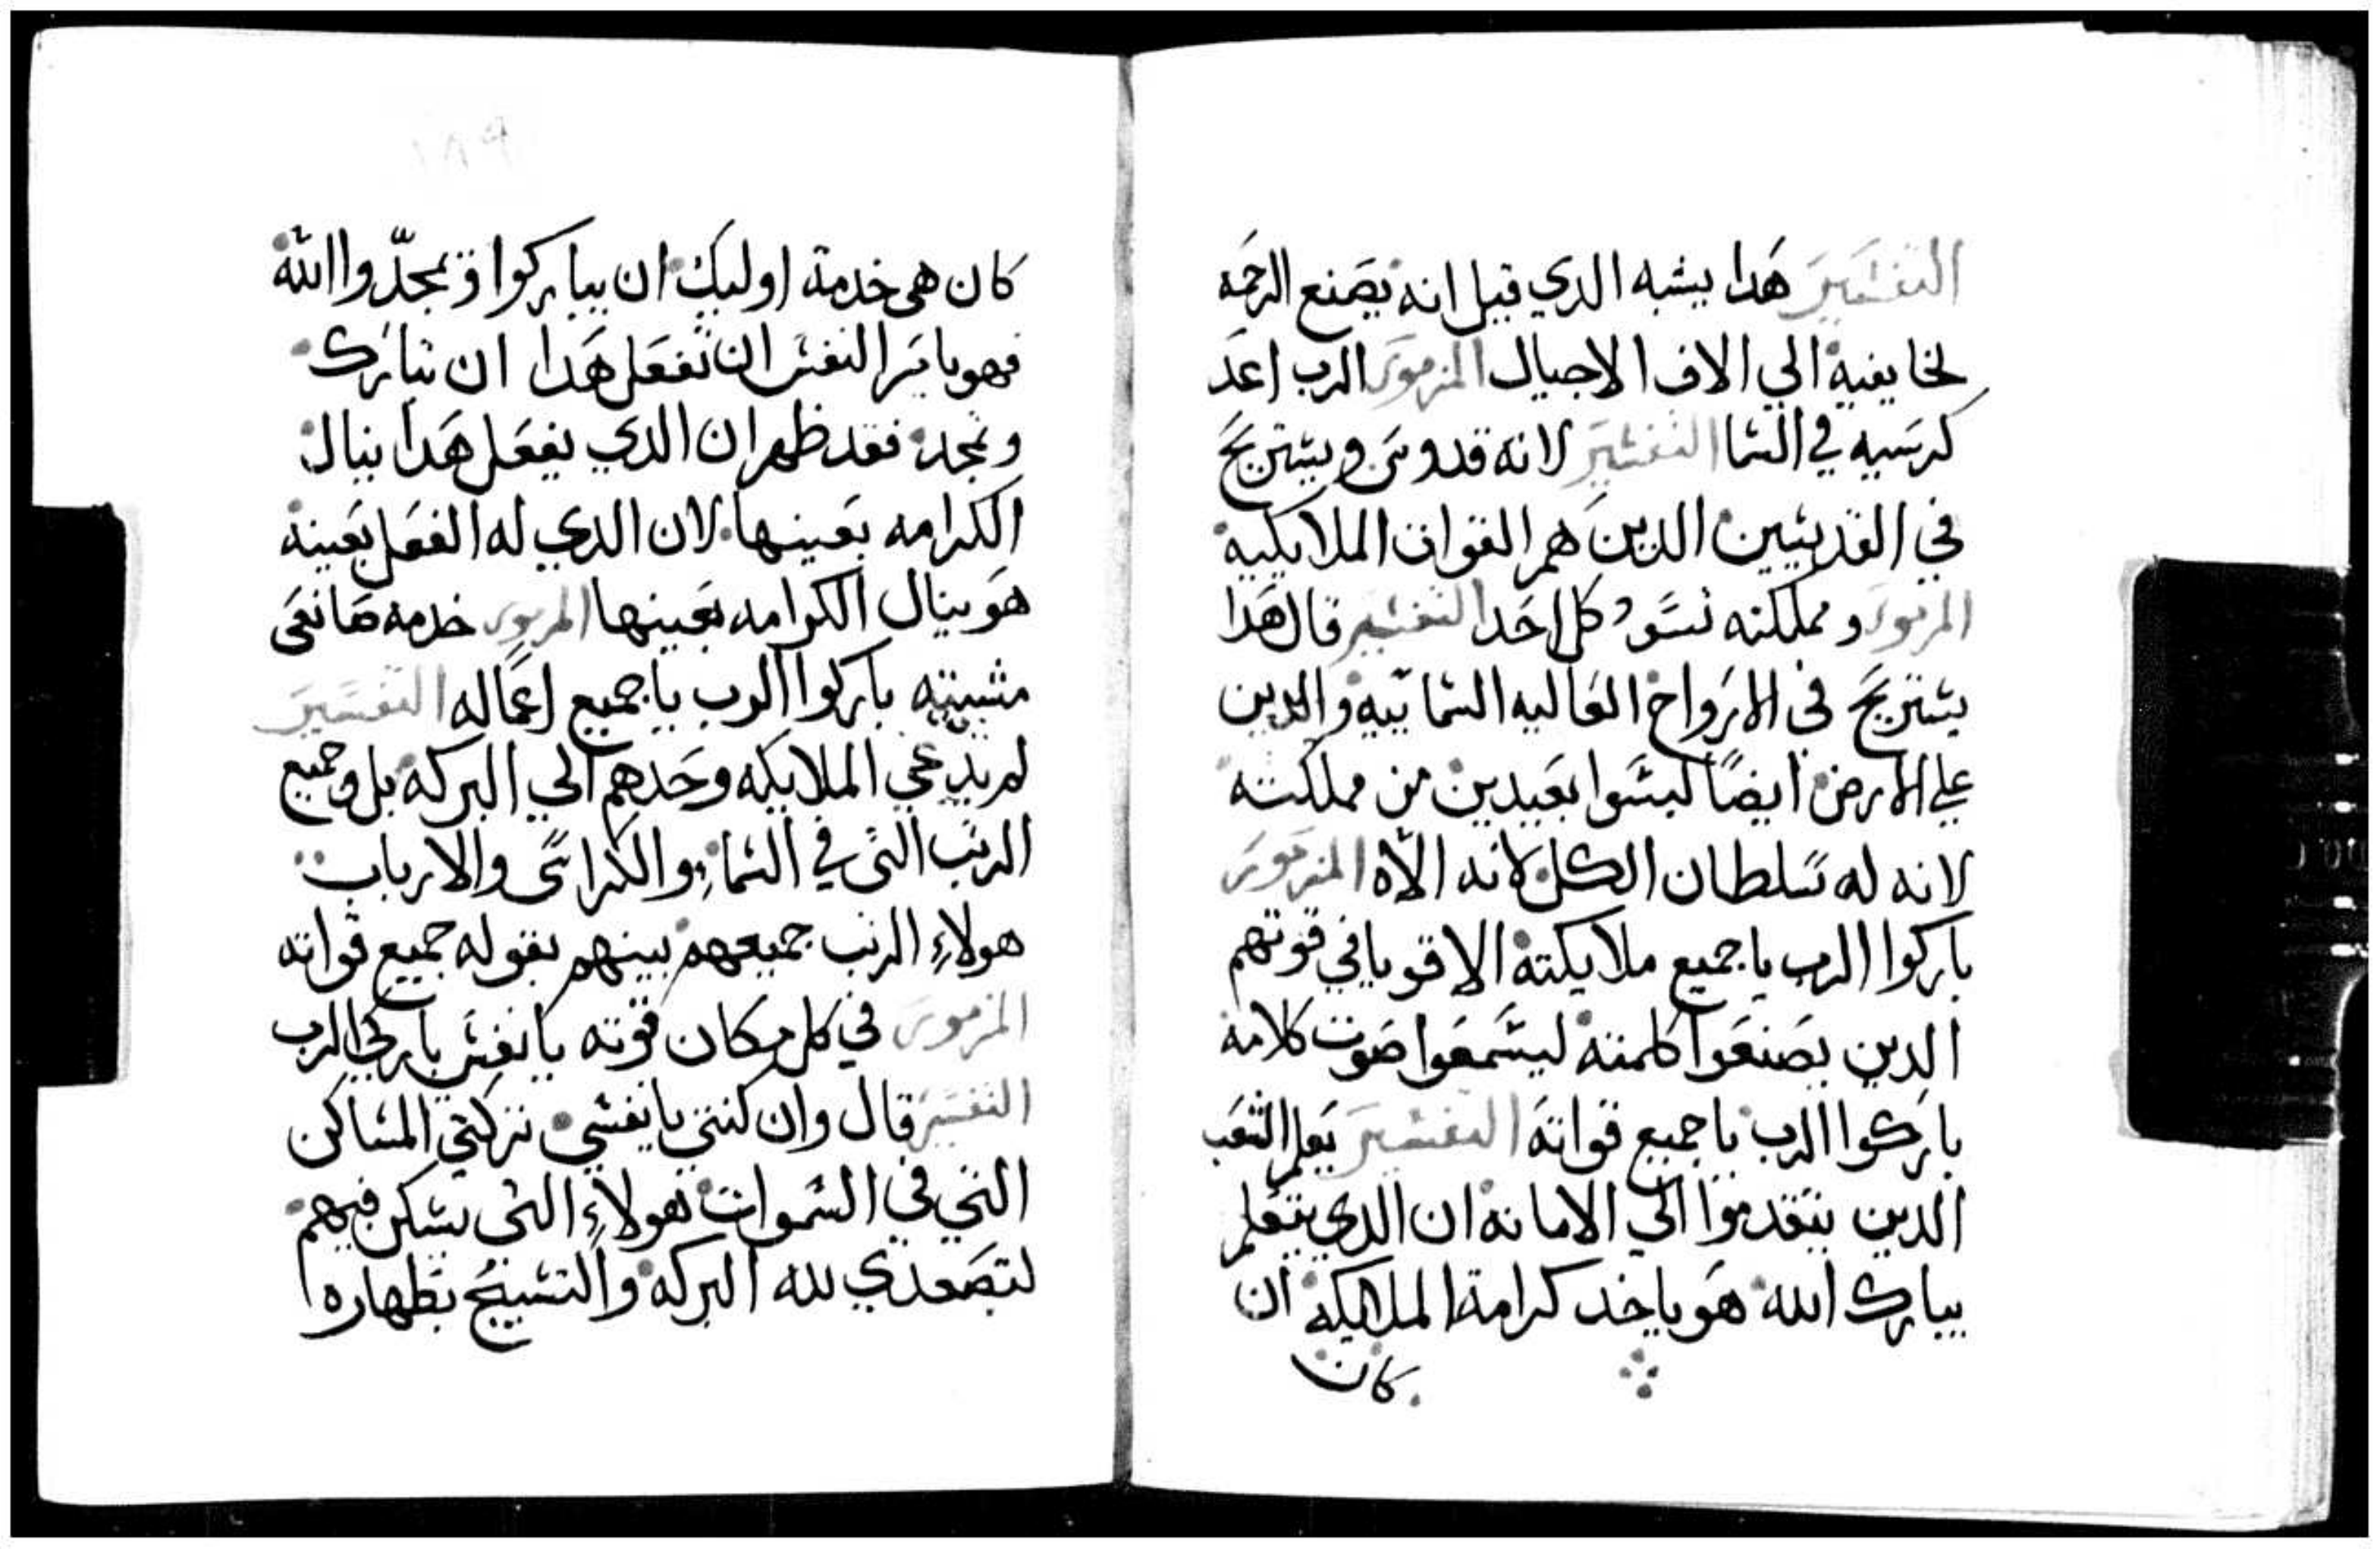 التفسير هدا يشبه الدي قيل انه يصنع الرحمه
لخايفيه الي الاف الاجيال المزمور الرب اعد
كرسيه في السما التفسير لانه قدوس ويستريح
في القديسين الدين هم القوات الملايكيه
المزمور ومملكته تسود كل احد التفسير قال هدا
يستريح في الارواح العاليه السماييه والدين
علي الارض ايضًا ليسوا بعيدين من مملكته
لانه له سلطان الكل لانه الاه المزمور
باركوا الرب يا جميع ملايكته الاقويا في قوتهم
الدين يصنعوا كلمته ليسمعوا صوت كلامه
باركوا الرب يا جميع قواته التفسير يعلم الشعب
الدين يتقدموا الي الامانه ان الدي يتعلم
يبارك الله هو ياخد كرامة الملايكه ان
كان
١٨٩
كان هى خدمة اوليك ان يباركوا ويمجدّوا الله
فهو يامر النفس ان تفعل هدا ان تبارك
وتمجد فقد ظهر ان الدي يفعل هدا ينال
الكرامه بعينها لان الدي له الفعل بعينه
هو ينال الكرامه بعينها المزمور خدمه صانعى
مشييته باركوا الرب يا جميع اعماله التفسير
لم يدعي الملايكه وحدهم الي البركه بل وجميع
الرتب التى في السماء والكراسى والارباب
هولاءِ الرتب جميعهم بينهم بقوله جميع قواته
المزمور في كل مكان قوته يا نفس باركي الرب
التفسير قال وان كنتي يا نفسي تركتي المساكن
التي في السموات هولاءِ التى يسكن فيهم
لتصعدي لله البركه والتسبيح بطهاره